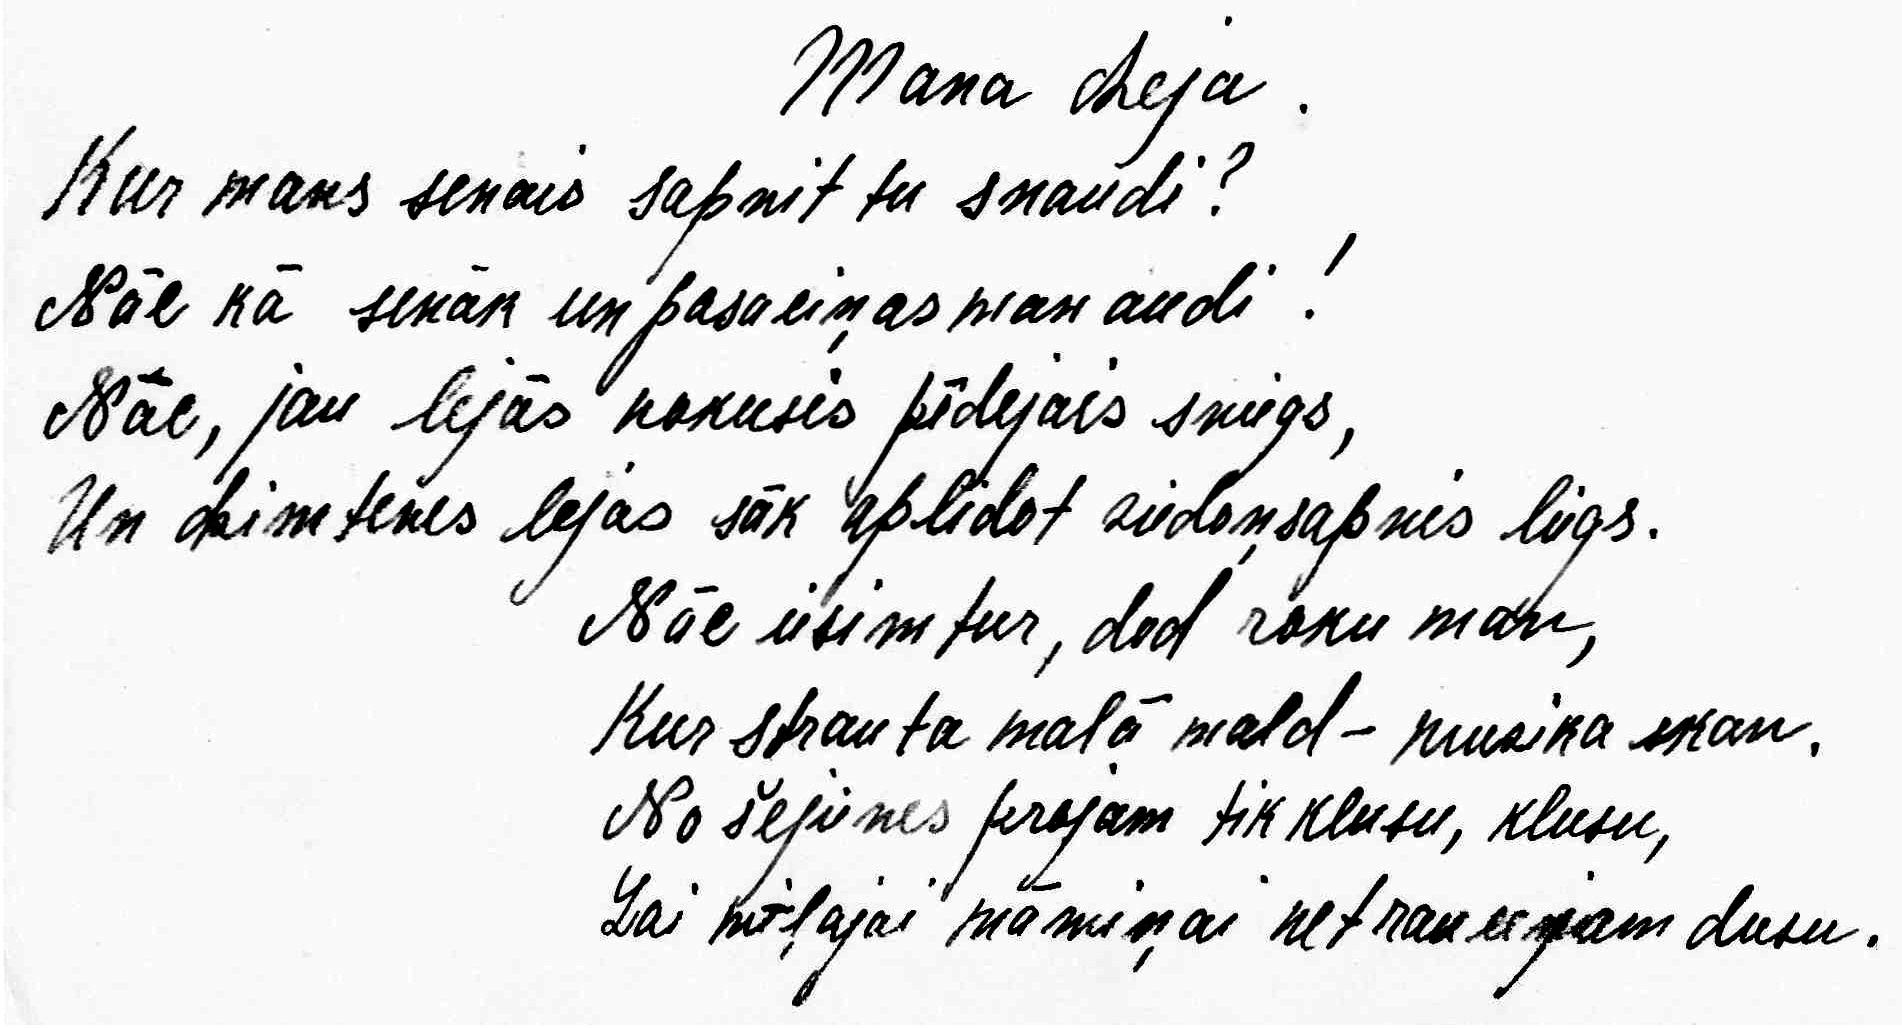 Mana Leja.
Kur mans senais sapnīt tu snaudi?
Nāc kā senāk un pasaciņas man audi!
Nāc, jau lejās nokusis pēdejais sniegs,
Un dzimtenes lejās sāk aplidot ziedoņsapnis liegs.
Nāc iesim tur, dod roku man,
Kur strauta malā mald - muzika skan.
No šejienes projam tik klusu, klusu,
Lai mīļajai māmiņai netraucejam dusu.